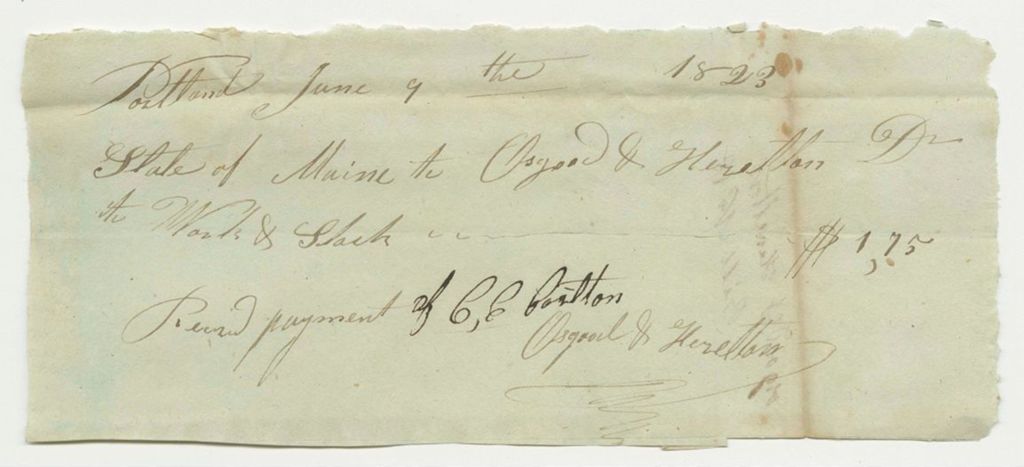 Portland June 9 the 1823
State of Maine to Osgood & Hezelton Dr
to Work & Stock $ 1,75
Recivd payment of C, E
Osgood & Hezelton